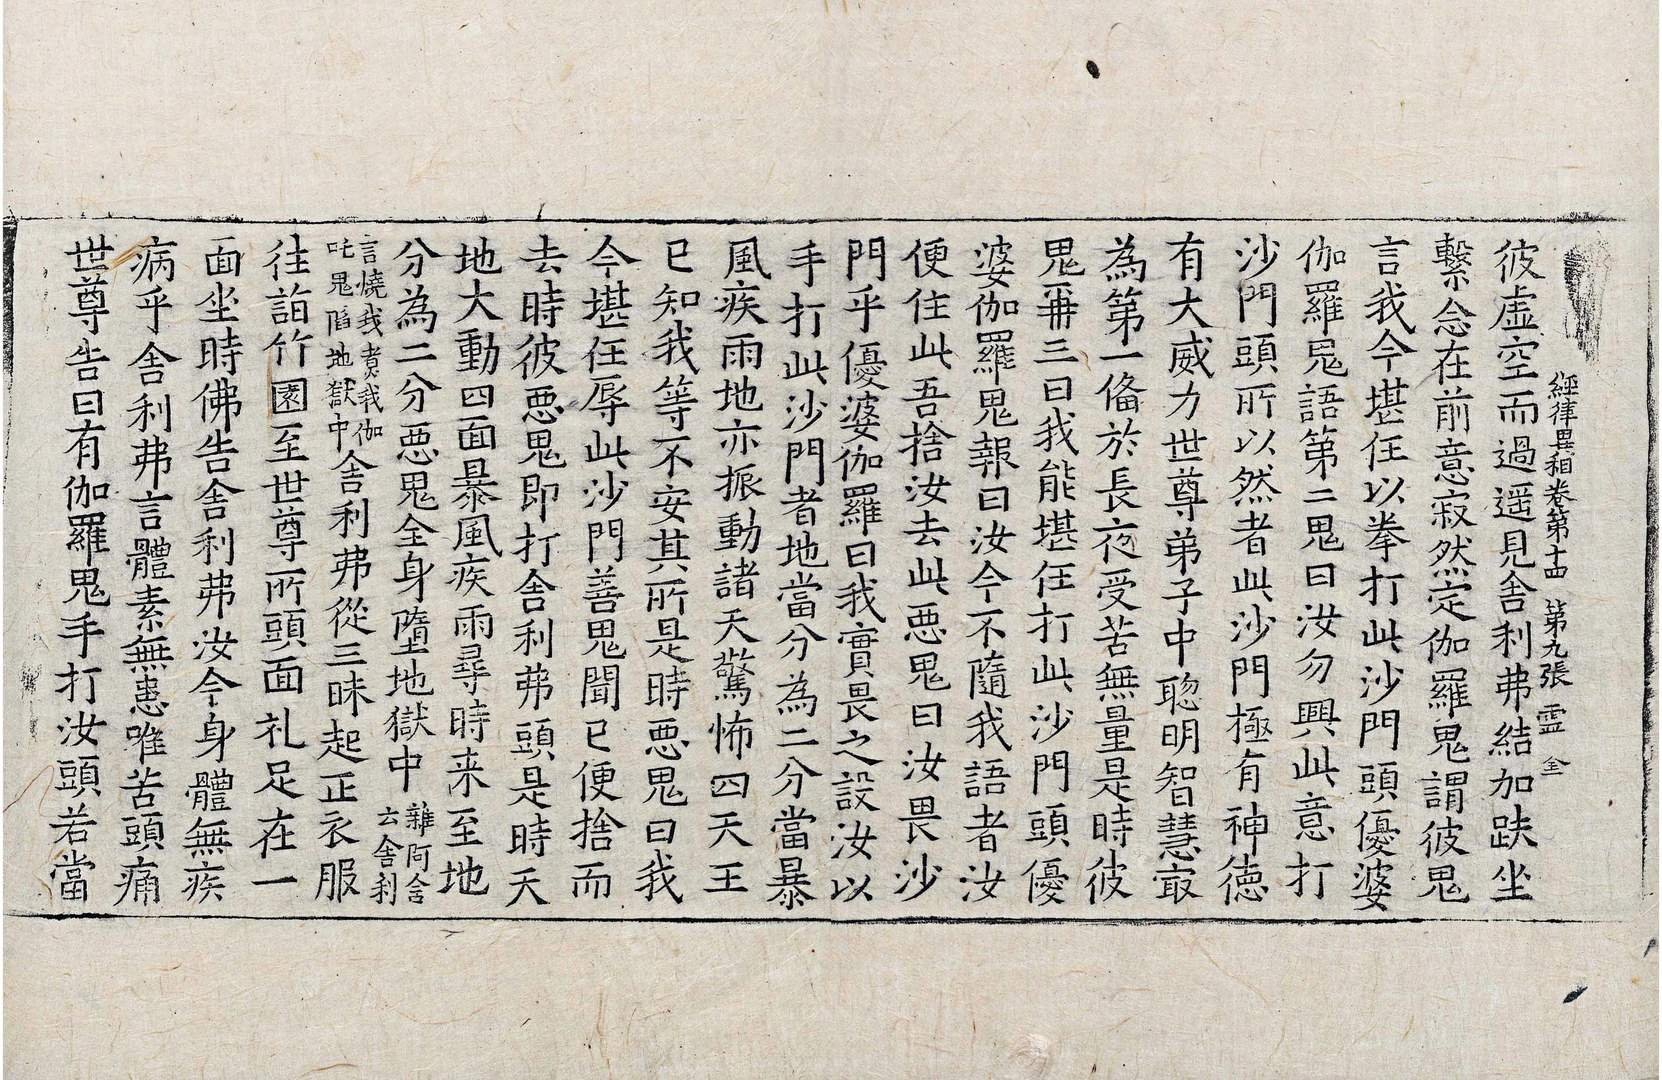 經律異相卷第十四 第九張 霊 全
彼虛空而過遥見舍利弗結加趺坐
繫念在前意寂然定伽羅鬼謂彼鬼
言我今堪任以拳打此沙門頭優婆
伽羅鬼語第二鬼曰汝勿興此意打
沙門頭所以然者此沙門極有神徳
有大威力世尊弟子中聦明智慧㝡
為第一俻於長夜受苦無量是時彼
鬼再三曰我能堪任打此沙門頭優
婆伽羅鬼報曰汝今不隨我語者汝
便住此吾捨汝去此惡鬼曰汝畏沙
門乎優婆伽羅曰我實畏之設汝以
手打此沙門者地當分為二分當暴
風疾雨地亦振動諸天驚怖四天王
已知我等不安其所是時惡鬼曰我
今堪任辱此沙門善鬼聞已便捨而
去時彼惡鬼即打舍利弗頭是時天
地大動四面暴風疾雨尋時来至地
分為二分惡鬼全身墮地獄中雜阿含云舍利
言燒我煮我伽吒鬼陷地獄中舍利弗從三昧起正衣服
往詣竹園至世尊所頭面礼足在一
面坐時佛告舍利弗汝今身體無疾
病乎舍利弗言體素無恙唯苦頭痛
世尊告曰有伽羅鬼手打汝頭若當